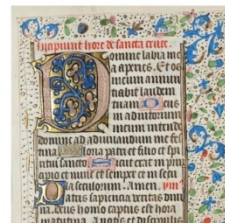 Incipiunt hore de sancta cruce.
Domine labia me
a aperies. Et os
meum annunti
abit laudem
tuam. Deus
in adiutorium
meum intende
domine ad adiuvandum me fe
Gloria patri et filio et spi
ritui sancto Sicut erat in prin
cipio et nunc et semper et in se
la seculorum. Amen. ym
Patris sapiencia veritas divi
na. deus homo captus est hora
matutina. A notis et discipulis